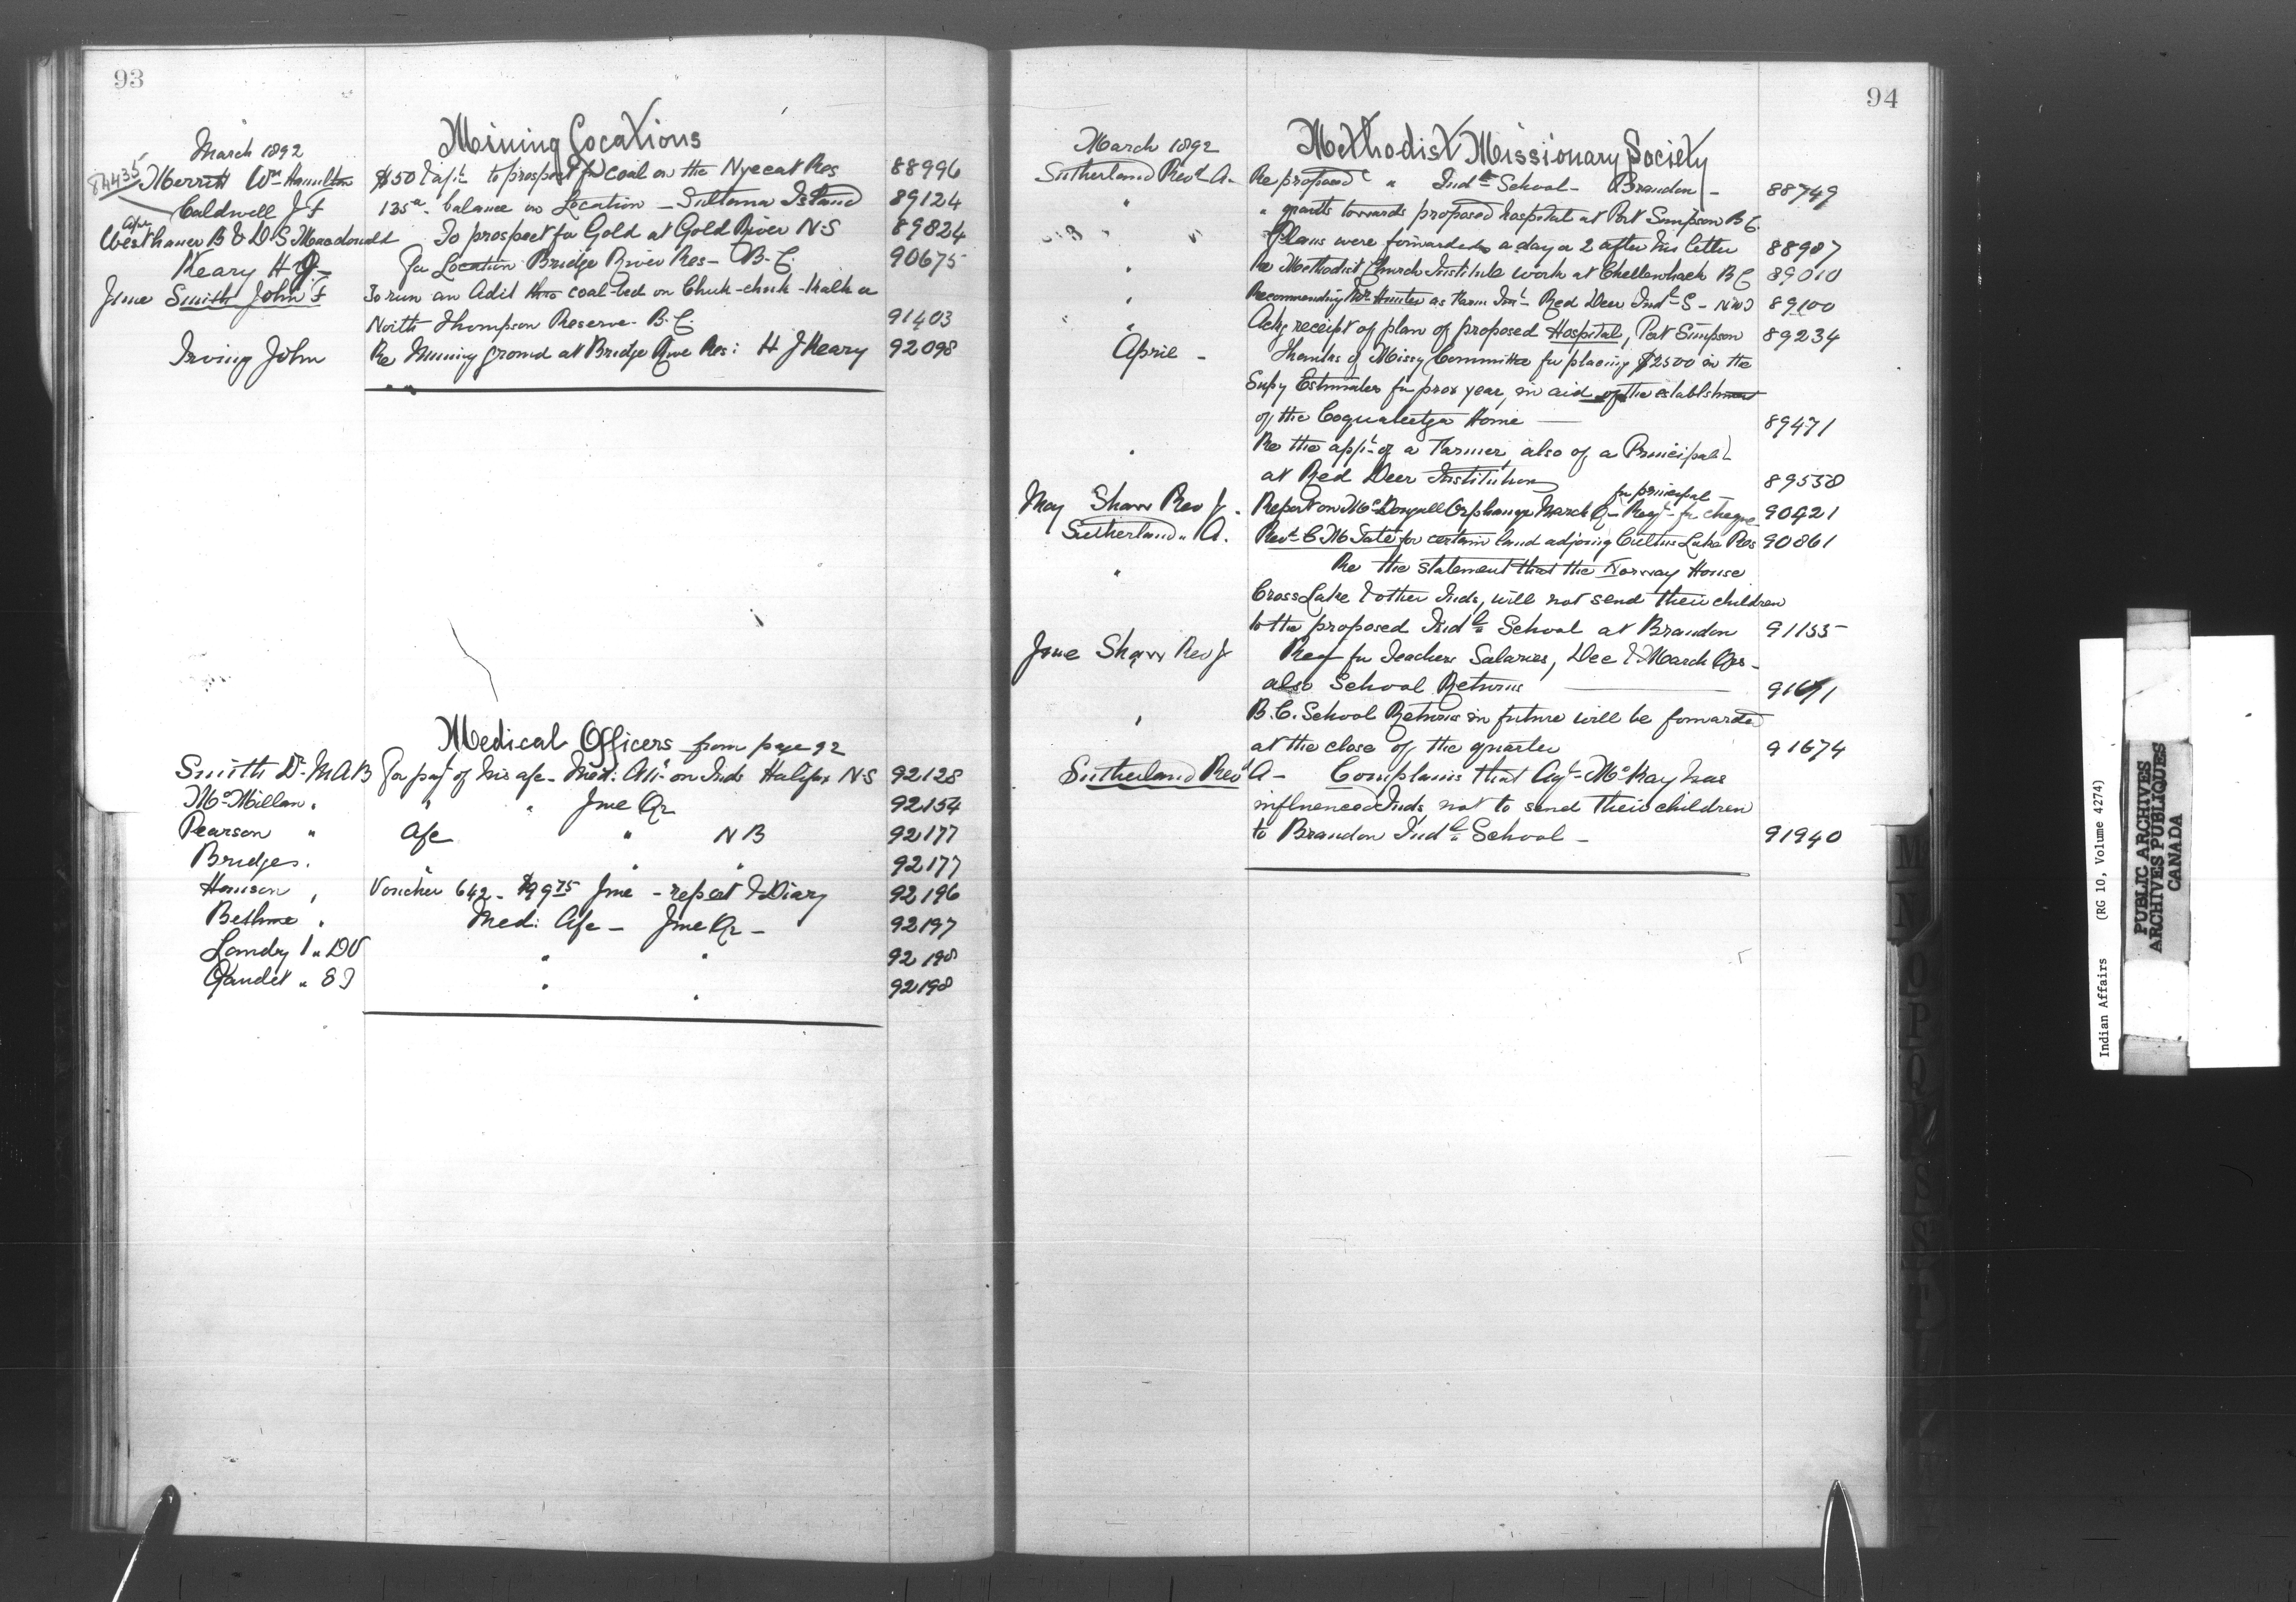 93
Mining Locations
March 1892
84435 Merritt Wm Hamilton $50 & to prospect for coal on the Nyecat Res 88996
Caldwell J F 135a. balance on Location - Sultana Island 89124
Apr
Westhaver B & D S Macdonald To prospect for Gold at Gold River N.S 89824
Keary H J - for Location Bridge River Res - B.C. 90675
June Smith John F To run an Adit thro coal-bed on Chuk-chuk-kalk or
North Thompson Reserve. B.C. 91403
Irving John Re Mining ground at Bridge River Res: H J Keary 92098
Medical Officers from page 92
Smith Dr M A B for payt of his a/c - Med: Att: on Inds Halifax N.S 92128
McMillan " " " June Qr 92154
Pearson " a/c " N B 92177
Bridges " " " " 92177
Voucher 642 - $9.75 June - report & Diary 92196
Bethune " Med: a/c - June Qr - 92197
Landry " D V " " 92198
Gaudet " E T " " 92198
94
Methodist Missionary Society
March 1892
Sutherland Revd A - Re proposed " Indl School - Brandon - 88749
" " grants towards proposed hospital at Port Simpson B C.
" Plans were forwarded a day or 2 after his letter 88987
" Re Methodist Church Institute work at Chellewhack B C 89010
" Recommending Mr Hunter as Farm Inr Red Deer Indl S - N W T 89100
" Ackg receipt of plan of proposed Hospital, Port Simpson 89234
April - Thanks of Missy Committee for placing $2500 in the
Supy Estimates for prox year, in aid of the establishment
of the Coqualeetza Home 89471
" Re the appt of a Farmer, also of a Principal
at Red Deer Institution 89538
for principal -
May Shaw Rev J. Report on McDougall Orphanage March Qr - Reqt for cheque 90421
Sutherland " A. Revd C M Tate for certain land adjoing Cultus Lake Res 90861
" Re the statement that the Norway House
Cross Lake & other Inds, will not send their children
to the proposed Indl School at Brandon 91155
June Shaw Rev J Req for Teachers Salaries, Dec & March Qrs -
also School Returns 91671
" B.C. School Returns in future will be forwarded
at the close of the quarter 91674
Sutherland Revd A - Complains that Agt McKay has
influenced Inds not to send their children
to Brandon Indl School - 91940
M
N
O
P
Indian Affairs (RG 10, Volume 4274)
PUBLIC ARCHIVES
ARCHIVES PUBLIQUES
CANADA